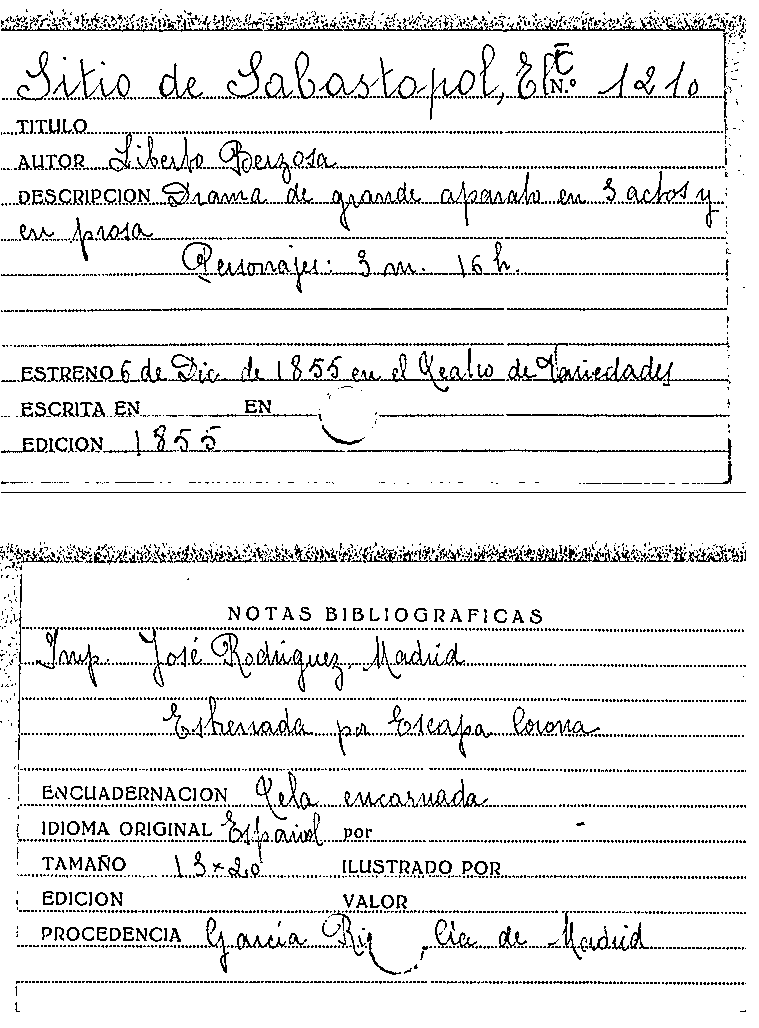 Sitio de Sabastopol, El N.º 1210
TITULO
AUTOR Liberto Berzosa
DESCRIPCION Drama de grande aparato en 3 actos y
en prosa
Personajes: 3 m. 16 h.
ESTRENO 6 de Dic. de 1855 en el Teatro de Variedades
ESCRITA EN EN
EDICION 1855
NOTAS BIBLIOGRAFICAS
Imp. José Rodriguez. Madrid
Estrenada por Escapa Corona
ENCUADERNACION Tela encarnada
IDIOMA ORIGINAL Español por -
TAMAÑO 13 x 20 ILUSTRADO POR
EDICION VALOR
PROCEDENCIA García Cia de Madrid